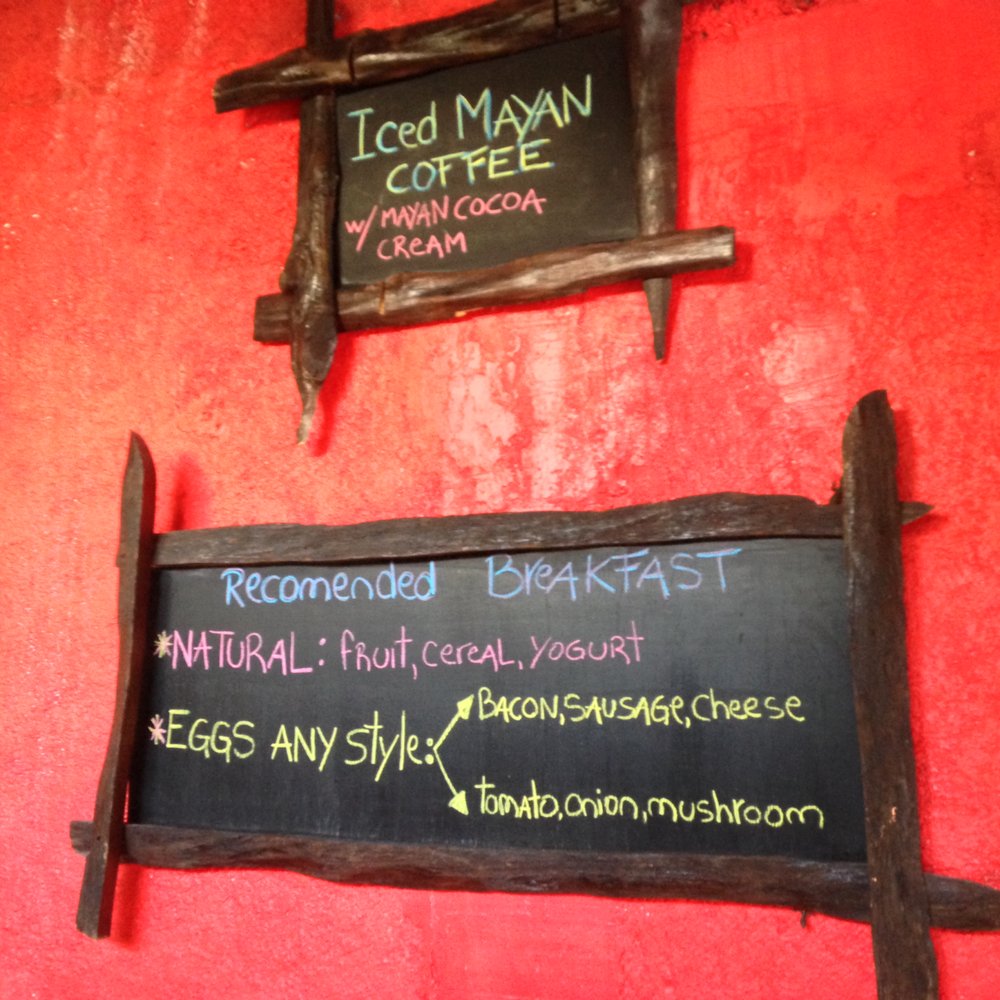 Iced MAYAN
COFFEE
w/ MAYAN COCOA
CREAM
Recomended BREAKFAST
*NATURAL: fruit, cereal, YOGURT
*EGGS ANY style:
BACON, SAUSAGE, cheese
tomato, onion, mushroom